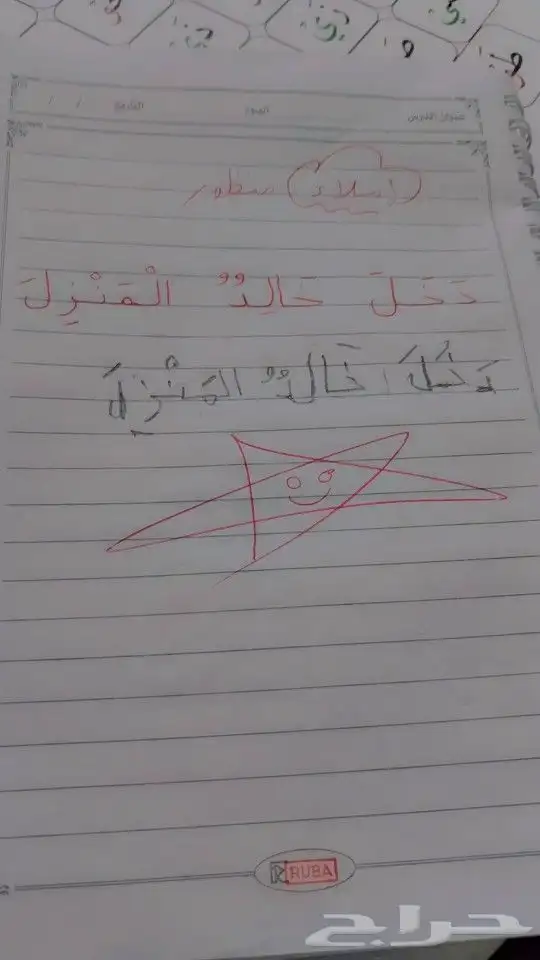 عنوان الدرس اليوم التاريخ / /
إملاء منظور
دَخَلَ خَالِدٌ الْمَنْزِلَ
دَخَلَ خَالِدٌ المَنْزِلَ
RUBA
حراج